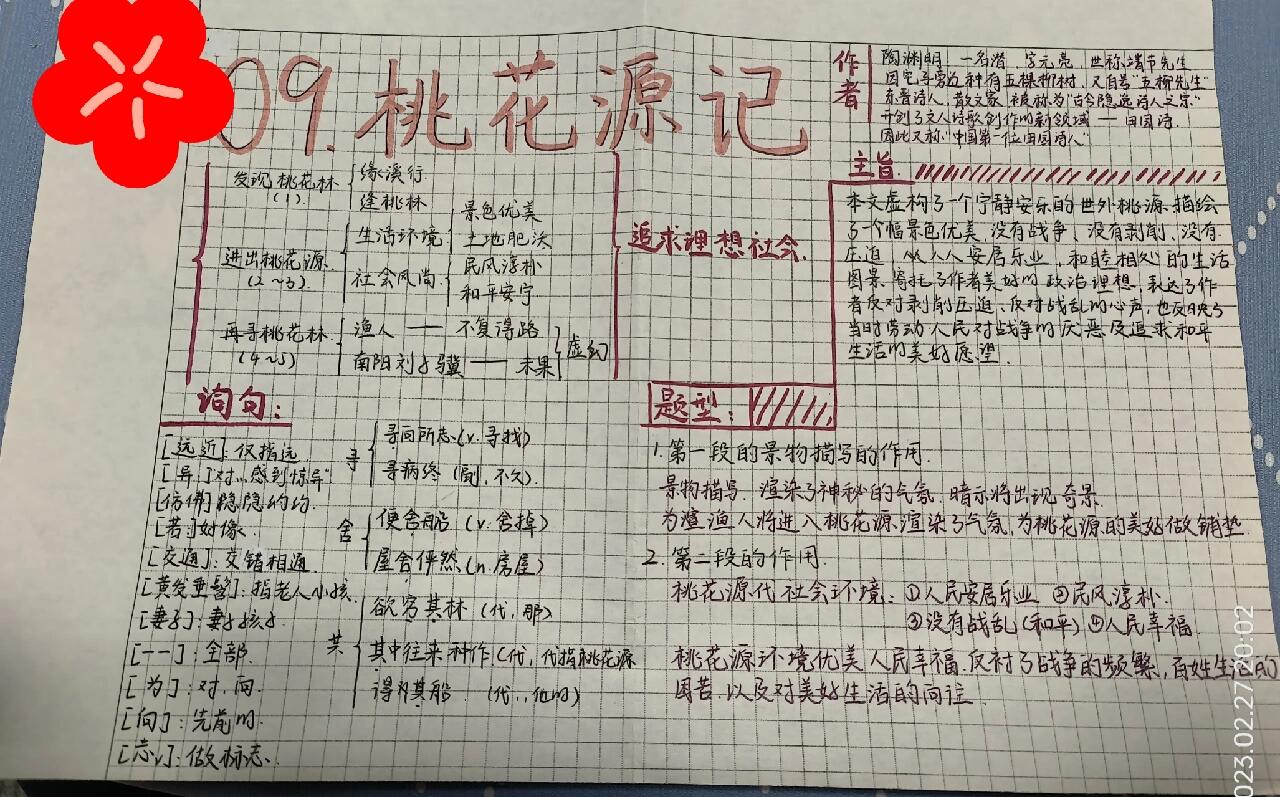 09.桃花源记
作者
陶渊明,一名潜,字元亮,世称靖节先生
因宅旁边种有五棵柳树,又自号"五柳先生"
东晋诗人,散文家,被称为"古今隐逸诗人之宗"
开创了文人诗歌创作的新领域——田园诗.
因此又称"中国第一位田园诗人"
发现桃花林
(1)
缘溪行
逢桃林
进出桃花源
(2~3)
生活环境
景色优美
土地肥沃
社会风尚
民风淳朴
和平安宁
再寻桃花林
(4~5)
渔人——不复得路
南阳刘子骥——未果
虚幻
追求理想社会.
主旨
本文虚构了一个宁静安乐的世外桃源.描绘
了个幅景色优美,没有战争、没有剥削、没有
压迫,人人安居乐业,和睦相处的生活
图景.寄托了作者美好的政治理想,表达了作
者反对剥削压迫、反对战乱的心声,也反映了
当时劳动人民对战争的厌恶及追求和平
生活的美好愿望.
词句:
[远近]:仅指远.
[异]对…感到惊异
[仿佛]隐隐的约.
[若]:好像.
[交通]:交错相通.
[黄发垂髫]:指老人小孩.
[妻子]:妻子孩子
[一一]:全部.
[为]:对,向.
[向]:先前的.
[志v]:做标志.
寻
寻向所志(v.寻找)
寻病终(副,不久)
舍
便舍船(v.舍掉)
屋舍俨然(n.房屋)
其
欲穷其林(代,那)
其中往来种作(代,代指桃花源
得其船(代,他的)
题型:
1.第一段的景物描写的作用.
景物描写.渲染了神秘的气氛.暗示将出现奇景
为渲渔人将进入桃花源.渲染了气氛,为桃花源的美好做铺垫.
2.第二段的作用.
桃花源代社会环境:①人民安居乐业 ②民风淳朴.
③没有战乱(和平)④人民幸福.
桃花源环境优美人民幸福.反衬了战争的频繁,百姓生活的
困苦.以及对美好生活的向往
023.02.27 20:02